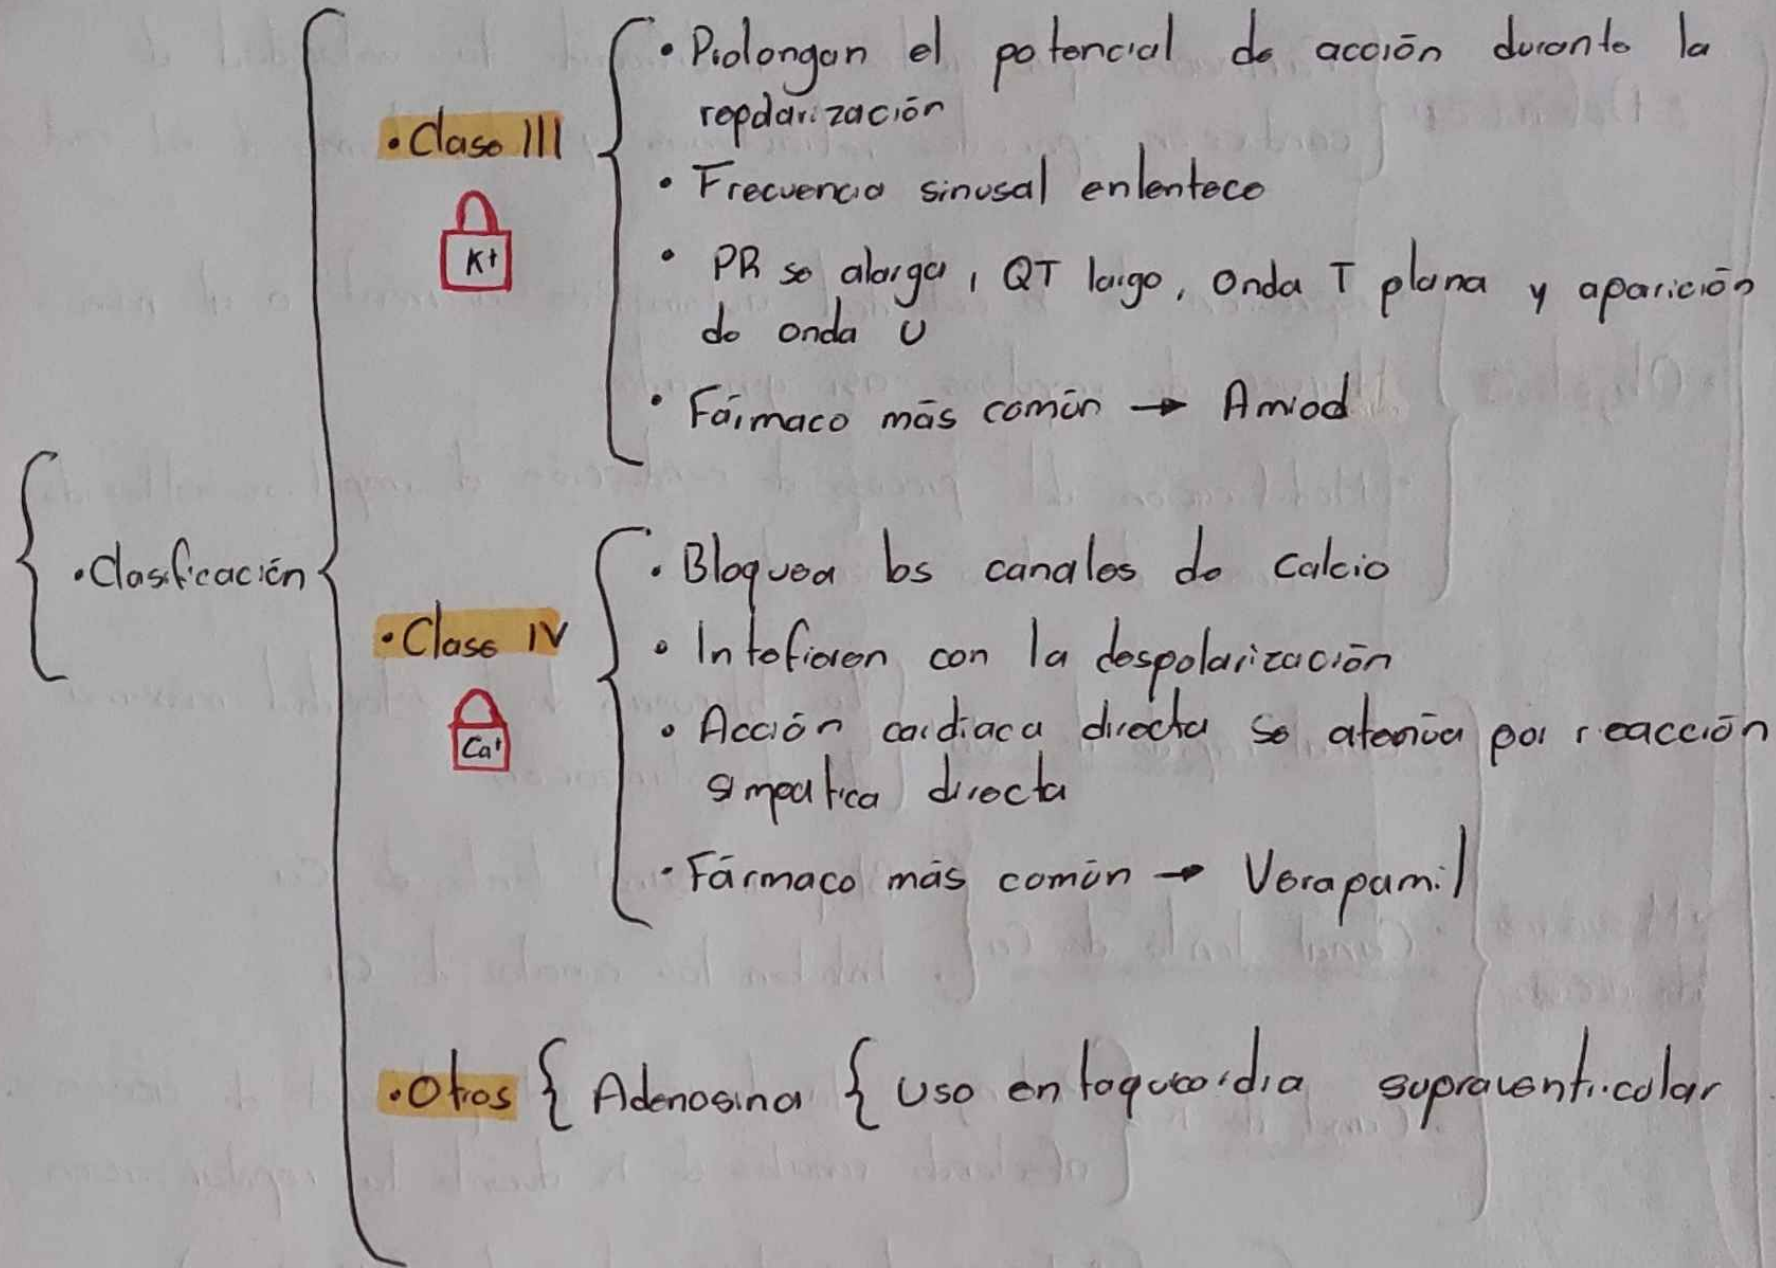 • Prolongan el potencial de acción durante la
repolarización
• Clase III
• Frecuencia sinusal enlentece
K+
• PR se alarga, QT largo, Onda T plana y aparición
de onda U
• Fármaco más común → Amiod
• Clasificación
• Bloquea los canales de Calcio
• Clase IV
• Intefieren con la despolarización
Ca+
• Acción cardiaca directa se atenúa por reacción
simpatica directa
• Fármaco más común → Verapamil
• Otros { Adenosina { Uso en taquicardia supraventricular